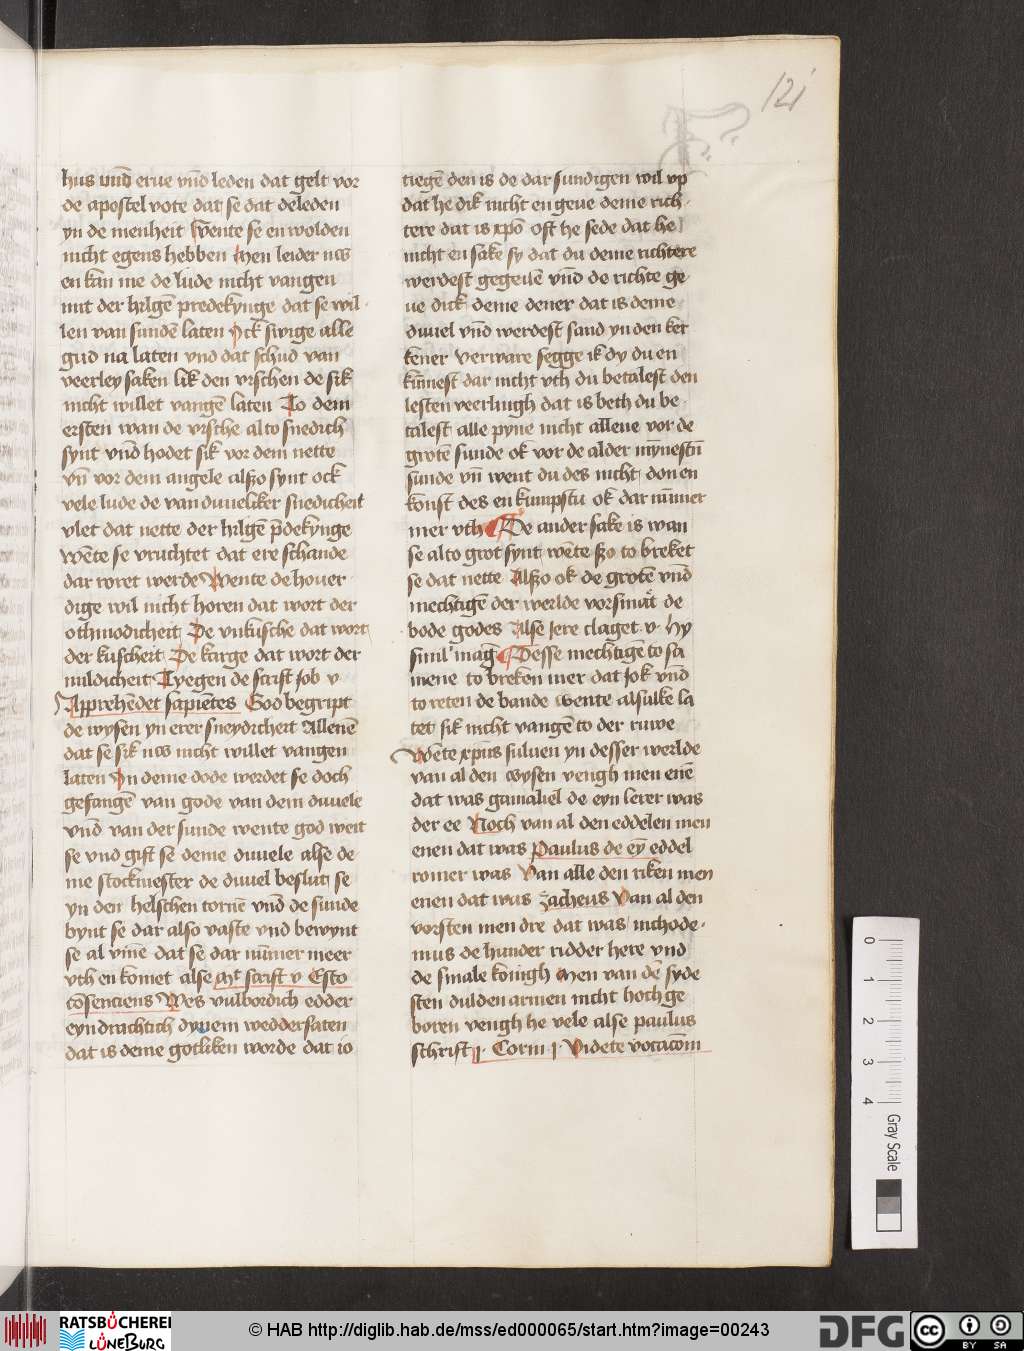 121
hus vnd erue vnd leden dat gelt vor
de apostel vote dat se dat deleden
yn de menheit Wente se en wolden
nicht egens hebben Men leider nw
en kan me de lude nicht vangen
mit der hilgē predekynge dat se wil
len van sundē laten Ock swige alle
gud na laten vnd dat schud van
veerley saken lik den vischen de sik
nicht willet vangē laten To dem
ersten wan de vische al to snedich
synt vnd hodet sik vor dem nette
vn̄ vor dem angele alszo synt ock
vele lude de van duueliker snedicheit
vlet dat nette der hilgē p̄dekynge
wēte se vruchtet dat ere schande
dar roret werde Wente de houer
dige wil nicht horen dat wort der
othmodicheit De vnkusche dat wort
der kuscheit De karge dat wort der
mildicheit Tyegen de scrift Job v
Apprehendet sapiētes God begript
de wysen yn erer sneydicheit Allenē
dat se sik nw nicht willet vangen
laten In deme dode werdet se doch
gefangē van gode van dem duuele
vnd van der sunde wente god weit
se vnd gift se deme duuele alse de
me stockmester de duuel beslut se
yn den helschen tornē vnd de sunde
bynt se dar also vaste vnd bewynt
se al vmē dat se dar nūmer meer
vth en komet alse scrift v Esto
cōsenciens Wes vulbordich edder
eyndrachtich dynem weddersaten
dat is deme gotliken worde dat io
tiegē den is de dar sundigen wil vp
dat he dik nicht en geue deme rich
tere dat is xp̄o Oft he sede dat he
nicht en sake sy dat du deme richtere
werdest gegeuē vnd de richte ge
ue dick deme dener dat is deme
duuel vnd werdest sand yn den ker
kener Verware segge ik dy du en
kūmest dar nicht vth du betalest den
lesten veerlingh dat is beth du be
talest alle pyne nicht allene vor de
grotē sunde ok vor de alder mynestū
sunde vn̄ went du des nicht don en
konst des en kumpstu ok dar nūmer
mer vth De ander sake is wan
se al to grot synt wēte szo to breket
se dat nette Alszo ok de grotē vnd
mechtigē der werlde vorsmat de
bode godes Alse Jere claget v Hy
simil' mag Desse mechtigē to sa
mene to breken mer dat Jok vnd
to reten de bande wente alsulke la
tet sik nicht vangē to der ruwe
Wēte xpūs suluen yn desser werlde
van al den wysen vengh men enē
dat was gamaliel de eyn lerer was
der ee Noch van al den eddelen men
enen dat was Paulus de ey eddel
romer was Van alle den riken men
enen dat was zacheus Van al den
vorsten men dre dat was nichode
mus de hunder ridder here vnd
de smale konigh Men van de syde
sten dulden armen nicht hoch ge
boren vengh he vele alse paulus
schrift j Corin j Videte vocacōm
0 1 2 3 4
Gray Scale
RATSBÜCHEREI
LÜNEBURG
© HAB http://diglib.hab.de/mss/ed000065/start.htm?image=00243
DFG
cc BY SA